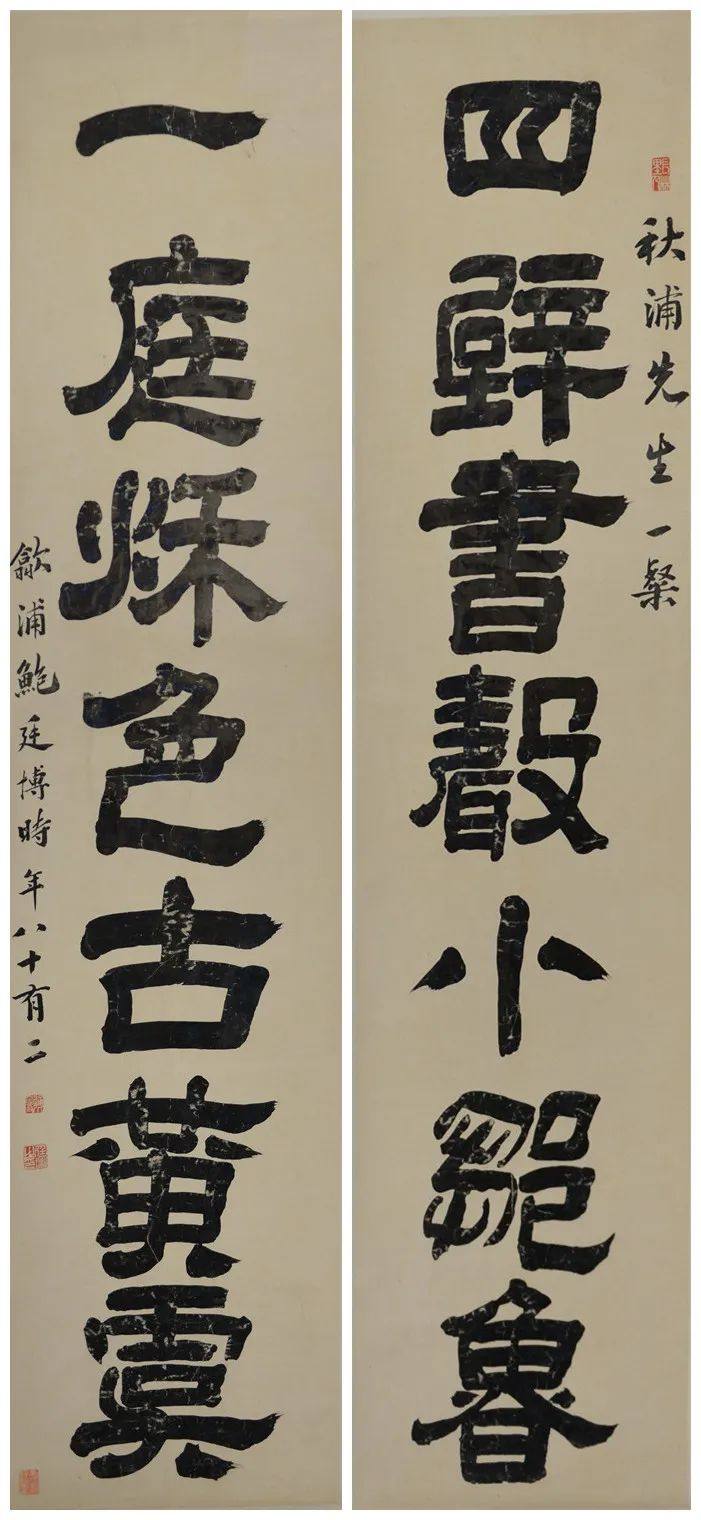 秋浦先生一粲
四壁書聲小鄒魯
一庭秌色古黄虞
歙浦鮑廷博時年八十有二